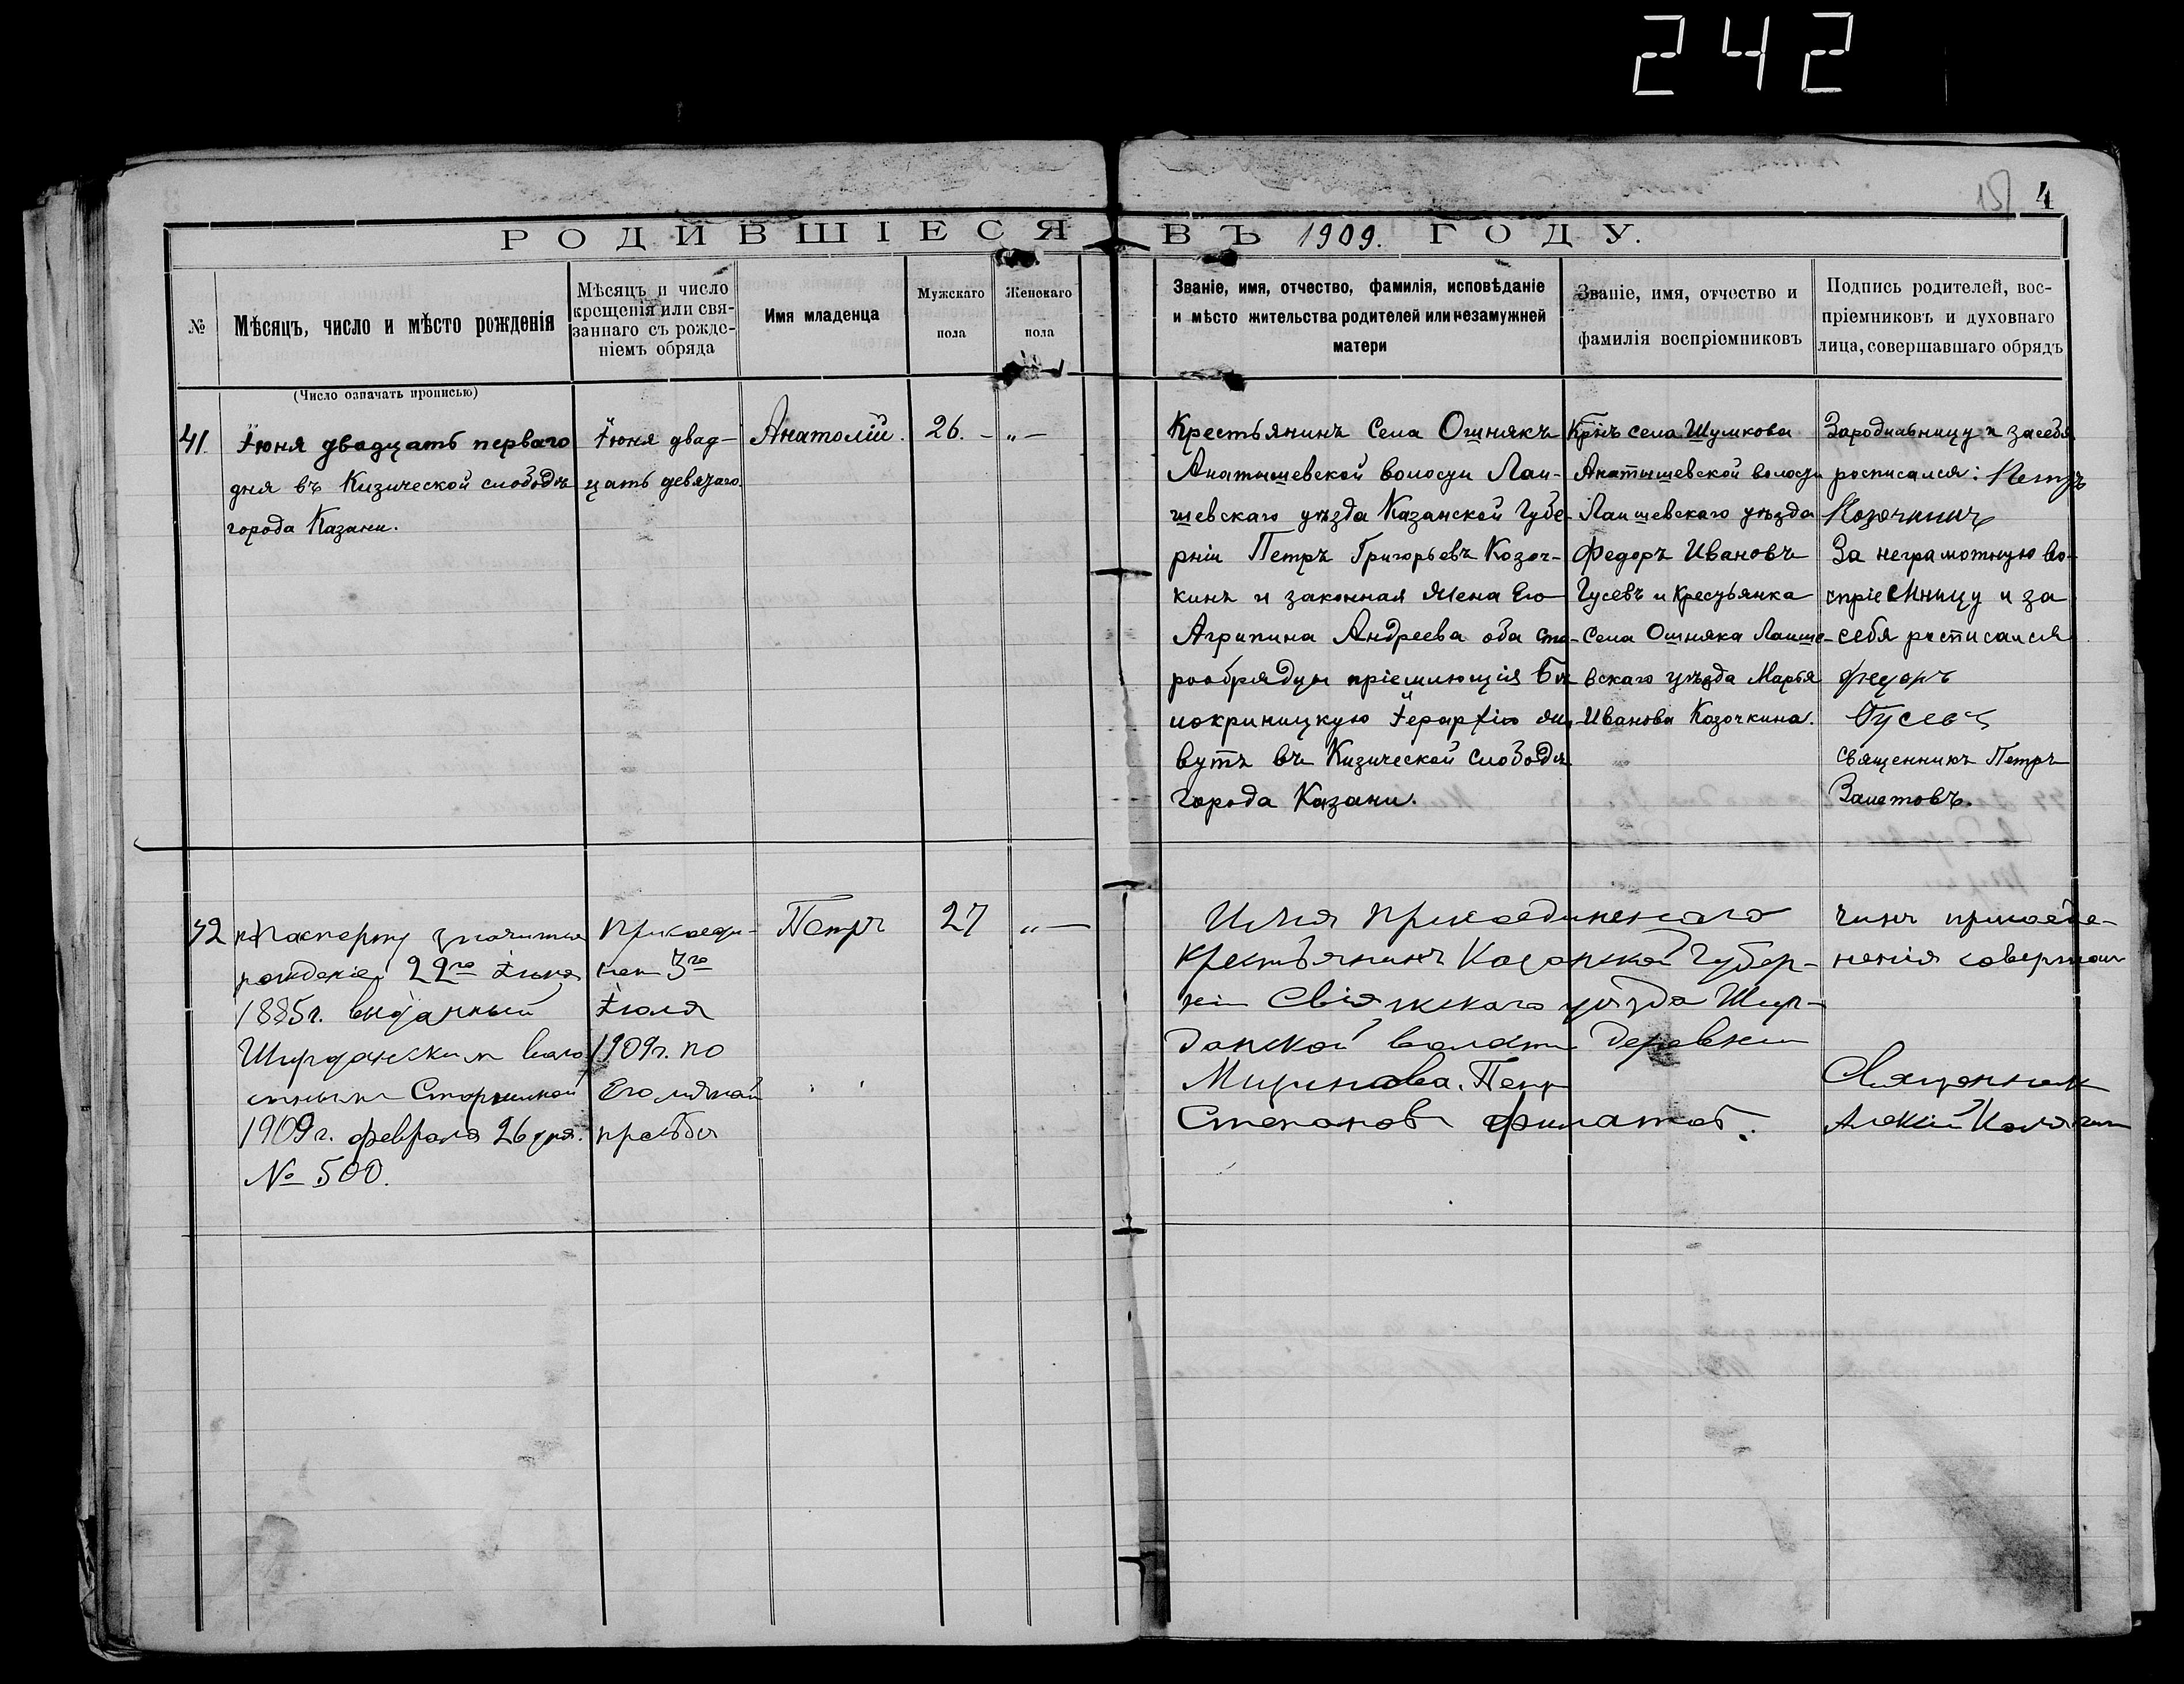 242
15 4
РОДИВШІЕСЯ ВЪ 1909. ГОДУ.
№
Мѣсяцъ, число и мѣсто рожденія
Мѣсяцъ и число
крещенія или свя-
заннаго съ рожде-
ніемъ обряда
Имя младенца
Мужскаго
пола
Женскаго
пола
Званіе, имя, отчество, фамилія, исповѣданіе
и мѣсто жительства родителей или незамужней
матери
Званіе, имя, отчество и
фамилія воспріемниковъ
Подпись родителей, вос-
пріемниковъ и духовнаго
лица, совершавшаго обрядъ
(Число означать прописью)
41.
Іюня двадцать перваго
дня въ Кизической слободѣ
города Казани.
Іюня двад-
цать девятаго.
Анатолій.
26. -
„ -
Крестьянинъ Села Ошнякъ
Анатышевской волости Лаи-
шевскаго уѣзда Казанской Губе-
рніи Петръ Григорьевъ Козоч-
кинъ и законная жена Его
Агрипина Андреева оба ста-
рообрядцы пріемлющія Бѣ
локриницкую Іерархію жи-
вутъ въ Кизической слободѣ
города Казани.
Крнъ села Шумкова
Анатышевской волости
Лаишевскаго уѣзда
Федоръ Ивановъ
Гусевъ и Крестьянка
Села Ошняка Лаише-
вскаго уѣзда Марья
Иванова Козочкина.
Зародильницу и засебя
росписался: Петръ
Козочкинъ
За неграмотную во-
спріемницу и за
себя росписался
Федоръ
Гусевъ
Священникъ Петръ
Залетовъ.
42
по Паспорту значится
рожденіе 22го Іюня
1885 г. выданный
Ширданскимъ воло
стнымъ Старшиной
1909 г. февраля 26 дня.
№ 500.
Присоеди-
нен 3го
Іюля
1909 г. по
Его личной
просьбѣ
Петръ
27
„ -
Имя присоединеннаго
Крестьянинъ Казанской Губер-
ніи Свіяжскаго уѣзда Шир-
данской волости деревни
Петр
Степановъ Филатов.
чинъ присоеди-
ненія совершал
Священник
Алексій